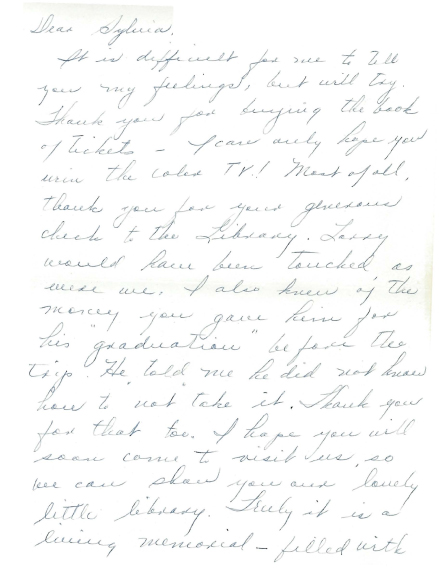 Dear Sylvia.
It is difficult for me to tell
you my feelings, but will try.
Thank you for buying the book
of tickets – I can only hope you
win the color TV! Most of all,
thank you for your generous
check to the Library. Larry
would have been touched, as
were we. I also knew of the
money you gave him for
his "graduation" before the
trip. He told me he did not know
how to "not" take it. Thank you
for that too. I hope you will
soon come to visit us, so
we can show you our lovely
little library. Truly it is a
living memorial – filled with